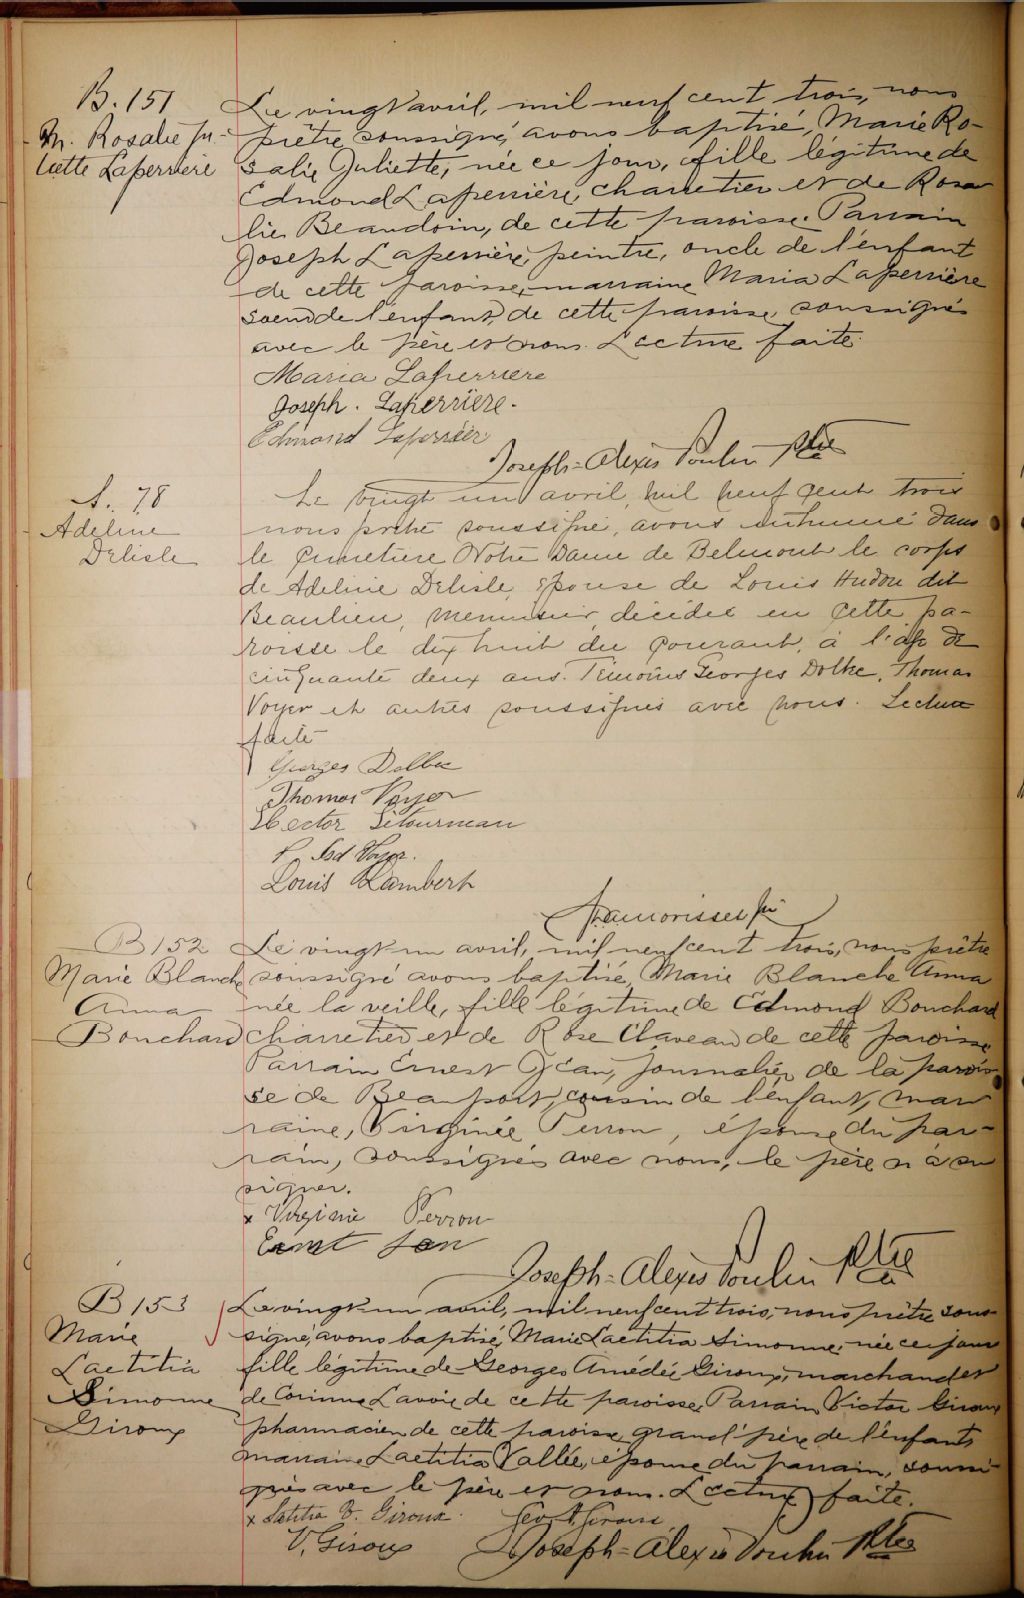 B. 151
M. Rosalie Ju-
liette Laperrière
Le vingt avril, mil neuf cent trois, nous
prêtre soussigné, avons baptisé, Marie Ro-
salie Juliette, née ce jour, fille légitime de
Edmond Laperrière, charretier et de Rosa
lie Beaudoin, de cette paroisse. Parrain
Joseph Laperrière, peintre, oncle de l'enfant
de cette paroisse, marraine Maria Laperrière
soeur de l'enfant, de cette paroisse, soussignés
avec le père et nous. Lecture faite.
Maria Laperriere
Joseph. Laperrière.
Edmond Laperrièr
Joseph-Alexis Poulin Ptre
S. 78
Adeline
Delisle
Le vingt un avril mil neuf cent trois
nous prêtre soussigné, avons inhumé dans
le cimetière Notre Dame de Belmont le corps
de Adeline Delisle, épouse de Louis Hudon dit
Beaulieu, menuisier, décédée en cette pa-
roisse le dix huit du courant, à l'âge de
cinquante deux ans. Témoins Georges Dolbec, Thomas
Voyer et autres soussignés avec nous. Lecture
faite
Georges Dolbec
Thomas Voyer
Hector Létourneau
Voyer.
Louis Lambert
Lamorisset ptr
B 152
Marie Blanche
Anna
Bouchard
Le vingt un avril, mil neuf cent trois, nous prêtre
soussigné avons baptisé, Marie Blanche Anna
née la veille, fille légitime de Edmond Bouchard
charretier et de Rose Claveau de cette paroisse
Parrain Ernest Jean, journalier de la parois
se de Beauport, cousin de l'enfant, mar
raine, Virginie Perron, épouse du par-
rain, soussignés avec nous, le père n'a su
signer.
x Virginie Perron
Ernest Jean
Joseph-Alexis Poulin Ptre
B 153
Marie
Laetitia
Simonne
Giroux
Le vingt un avril, mil neuf cent trois, nous prêtre sous-
signé, avons baptisé, Marie Laetitia Simonne, née ce jour
fille légitime de Georges Amédée Giroux, marchand et
de Corinne Lavoie de cette paroisse. Parrain Victor Giroux
pharmacien de cette paroisse grand'père de l'enfant,
marraine Laetitia Vallée, épouse du parrain, soussi-
gnés avec le père et nous. Lecture faite.
x Letitia V. Giroux Geo A Giroux
V. Giroux Joseph-Alexis Poulin Ptre